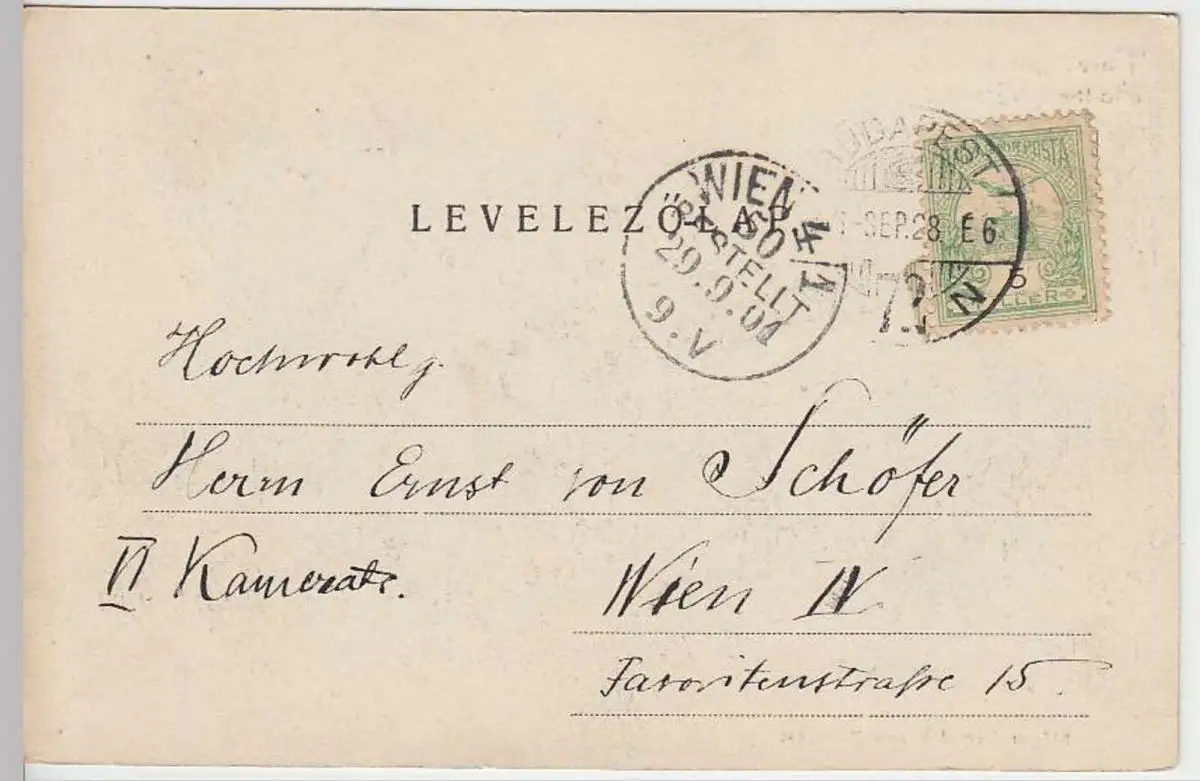 LEVELEZŐ-LAP
WIEN 4/1
50
BESTELLT
29.9.01
9.V
BUDAPEST
-SEP.28 E6
N
POSTA
5
Hochwohlg.
Herrn Ernst von Schöfer
VI Kamerate.
Wien IV
Favoritenstraße 15.